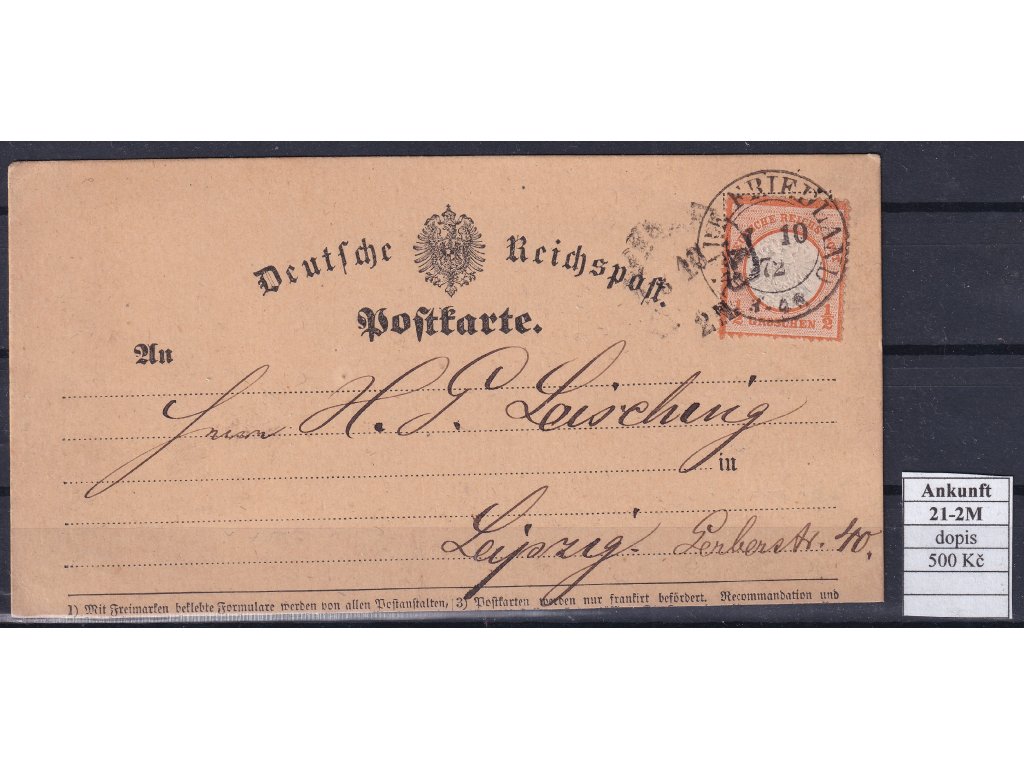 Deutsche Reichspost.
Postkarte.
FRIEDLAND
10
72
DEUTSCHE REICHS
½ GROSCHEN ½
An
Herrn H. G. Leisching
in
Leipzig. Gerberstr. 40.
1) Mit Freimarken beklebte Formulare werden von allen Postanstalten, 3) Postkarten werden nur frankirt befördert. Recommandation und
Ankunft
21-2M
dopis
500 Kč